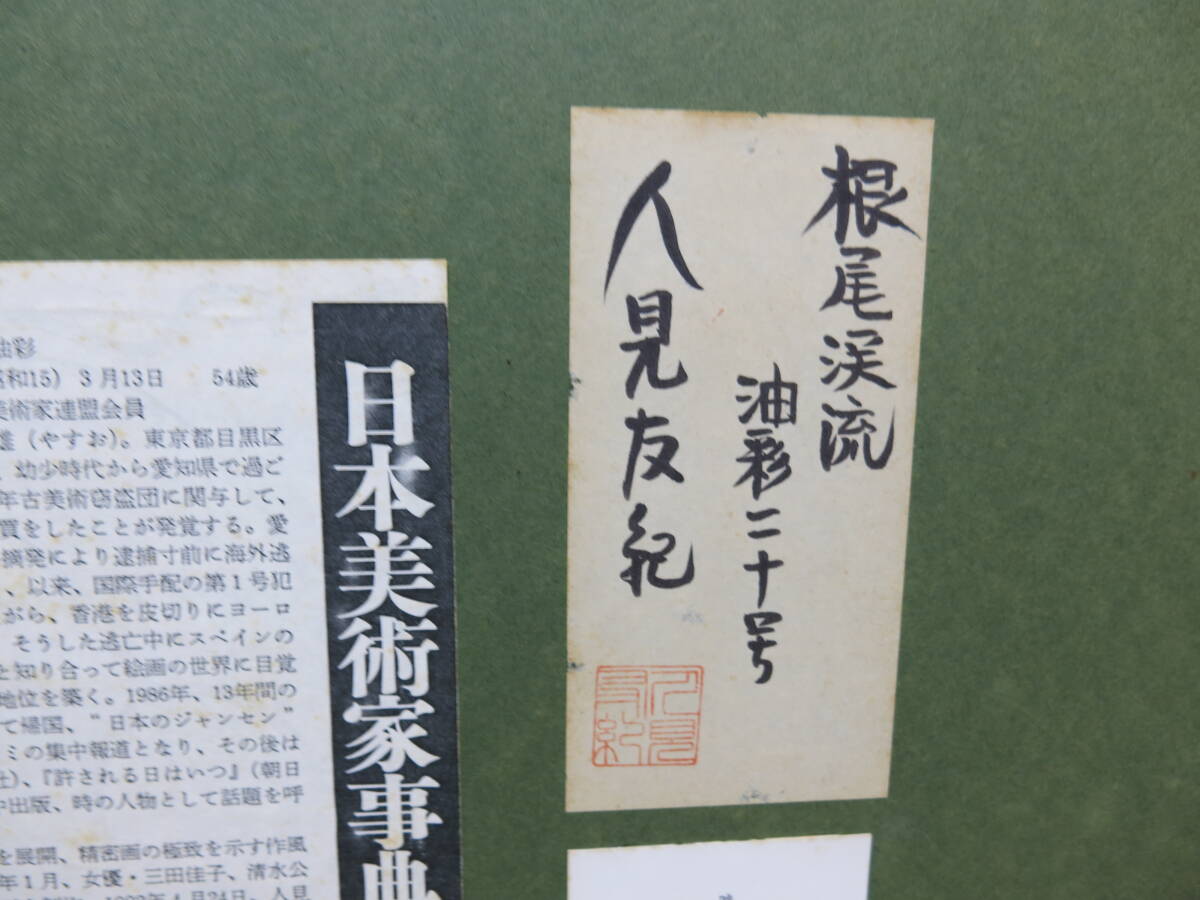 根尾渓流
油彩二十号
人見友紀
人見
友紀
日本美術家事典
油彩
和15) 3月13日 54歳
美術家連盟会員
雄(やすお)。東京都目黒区
、幼少時代から愛知県で過ご
年古美術窃盗団に関与して、
買をしたことが発覚する。愛
摘発により逮捕寸前に海外逃
、以来、国際手配の第1号犯
がら、香港を皮切りにヨーロ
。そうした逃亡中にスペインの
と知り合って絵画の世界に目覚
地位を築く。1986年、13年間の
て帰国、“日本のジャンセン”
ミの集中報道となり、その後は
社)、『許される日はいつ』(朝日
出版、時の人物として話題を呼
を展開、精密画の極致を示す作風
年1月、女優・三田佳子、清水公